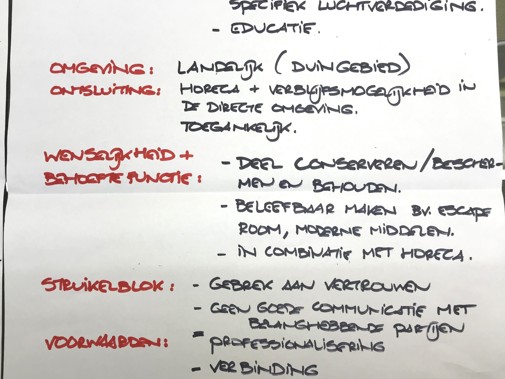 SPECIFIEK LUCHTVERDEDIGING.
- EDUCATIE.
OMGEVING: LANDELIJK (DUINGEBIED)
ONTSLUITING: HORECA + VERBLIJFSMOGELIJKHEID IN
DE DIRECTE OMGEVING.
TOEGANKELIJK.
WENSELIJKHEID + - DEEL CONSERVEREN/BESCHER-
BEHOEFTE FUNCTIE: MEN EN BEHOUDEN.
- BELEEFBAAR MAKEN BV. ESCAPE
ROOM, MODERNE MIDDELEN.
- IN COMBINATIE MET HORECA.
STRUIKELBLOK: - GEBREK AAN VERTROUWEN
- GEEN GOEDE COMMUNICATIE MET
BELANGHEBBENDE PARTIJEN
VOORWAARDEN: - PROFESSIONALISERING
- VERBINDING